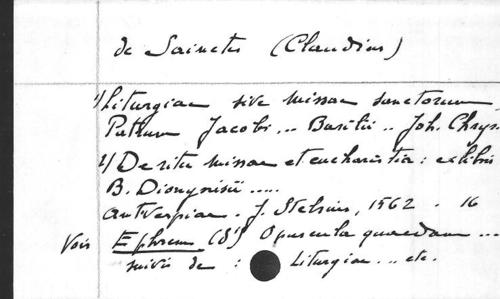 de Sainctes (Claudius)
1) Liturgiae sive missae sanctorum
Patrum Jacobi ... Basilii .. Joh. Chrys.
2) De ritu missae et eucharistia : ex libris
B. Dionysii .....
Antverpiae. J. Stelsius, 1562 . 16
Vois Ephrem (St) Opuscula quaedam ...
suivis de : Liturgiae ... etc.